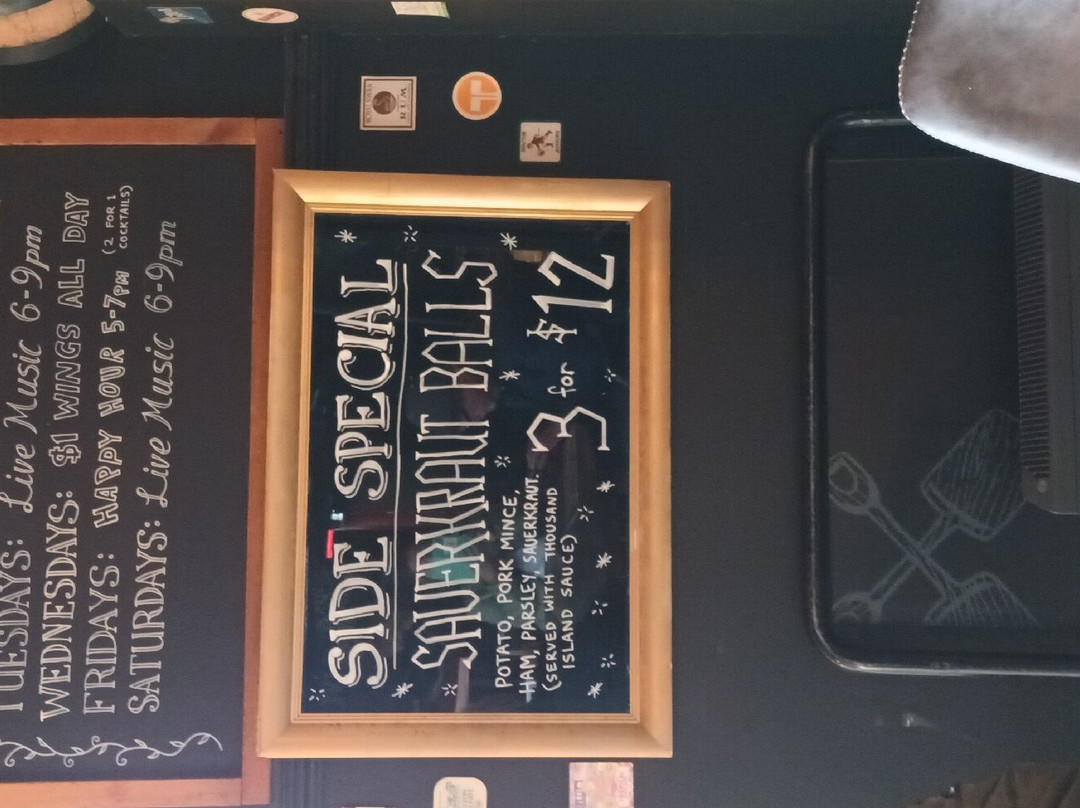 TUESDAYS: Live Music 6-9pm
WEDNESDAYS: $1 WINGS ALL DAY
FRIDAYS: HAPPY HOUR 5-7PM (2 FOR 1 COCKTAILS)
SATURDAYS: Live Music 6-9pm
SIDE SPECIAL
SAUERKRAUT BALLS
POTATO, PORK MINCE,
HAM, PARSLEY, SAUERKRAUT.
(SERVED WITH THOUSAND
ISLAND SAUCE)
3 for $12